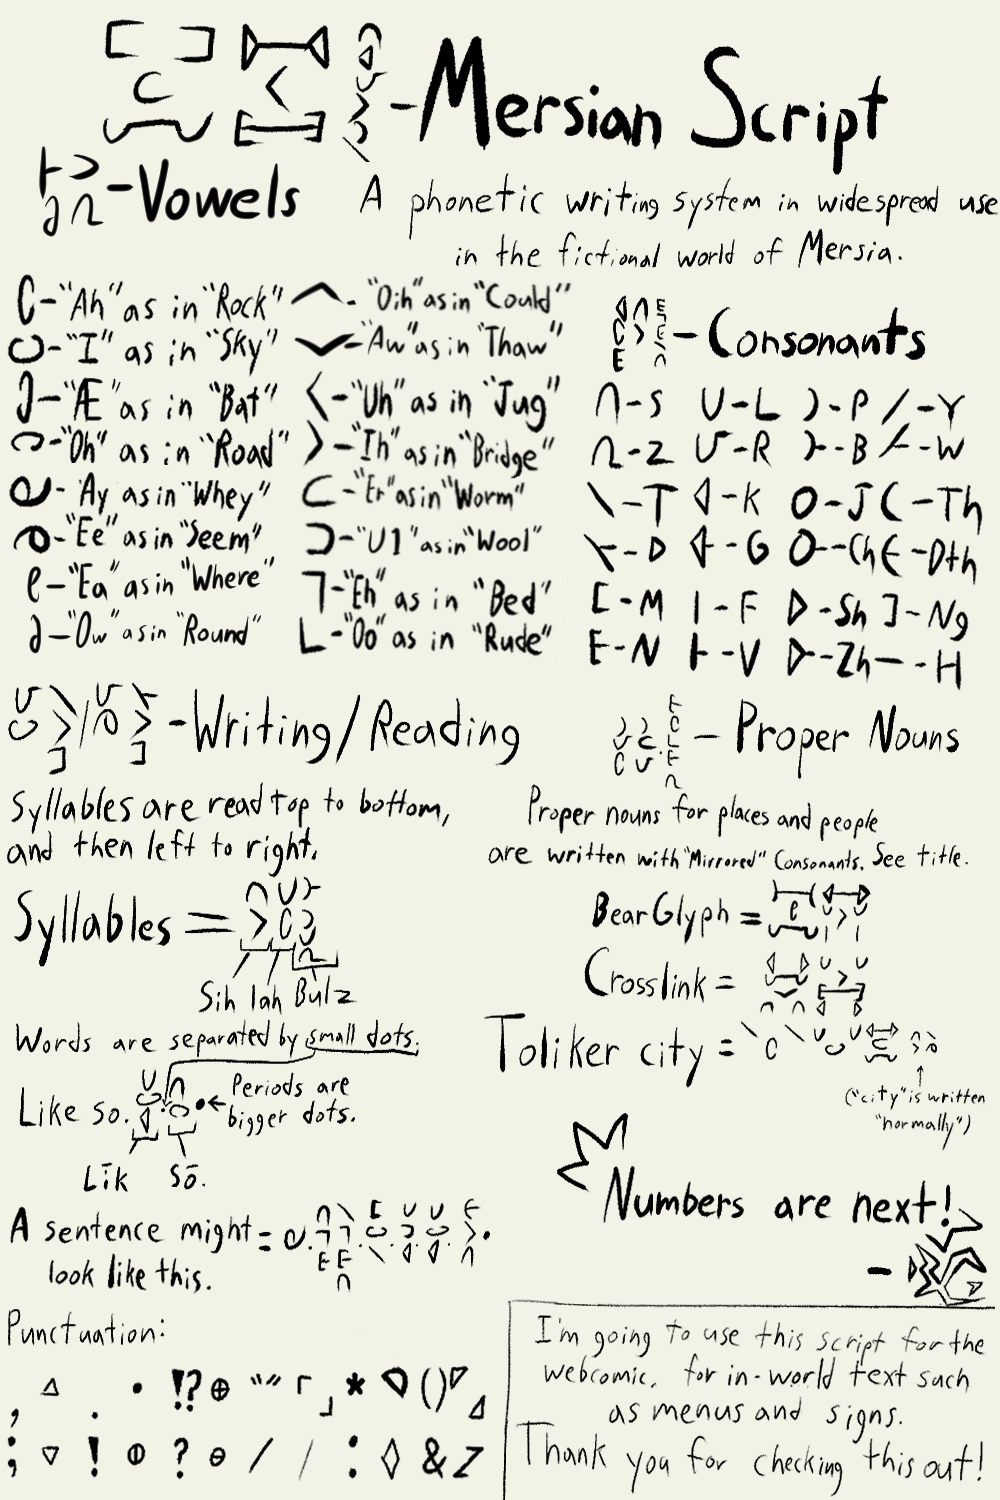 -Mersian Script
-Vowels
A phonetic writing system in widespread use
in the fictional world of Mersia.
-"Ah" as in "Rock"
-"I" as in "Sky"
-"Æ" as in "Bat"
-"Oh" as in "Road"
-"Ay as in "Whey"
-"Ee" as in "Seem"
-"Ea" as in "Where"
-"Ow" as in "Round"
-"Oih" as in "Could"
-"Aw" as in "Thaw"
-"Uh" as in "Jug"
-"Ih" as in "Bridge"
-"Er" as in "Worm"
-"Ul" as in "Wool"
-"Eh" as in "Bed"
-"Oo" as in "Rude"
-Consonants
-S -L -P -Y
-Z -R -B -W
-T -K -J -Th
-D -G -Ch -Dth
-M -F -Sh -Ng
-N -V -Zh -H
-Writing/Reading
Syllables are read top to bottom,
and then left to right.
Syllables =
Sih lah Bulz
Words are separated by small dots.
Like so.
Periods are
bigger dots.
Līk Sō.
A sentence might =
look like this.
Punctuation:
- Proper Nouns
Proper nouns for places and people
are written with "Mirrored" Consonants. See title.
BearGlyph =
Crosslink =
Toliker city =
("city" is written
"normally")
Numbers are next!
I'm going to use this script for the
webcomic, for in-world text such
as menus and signs.
Thank you for checking this out!